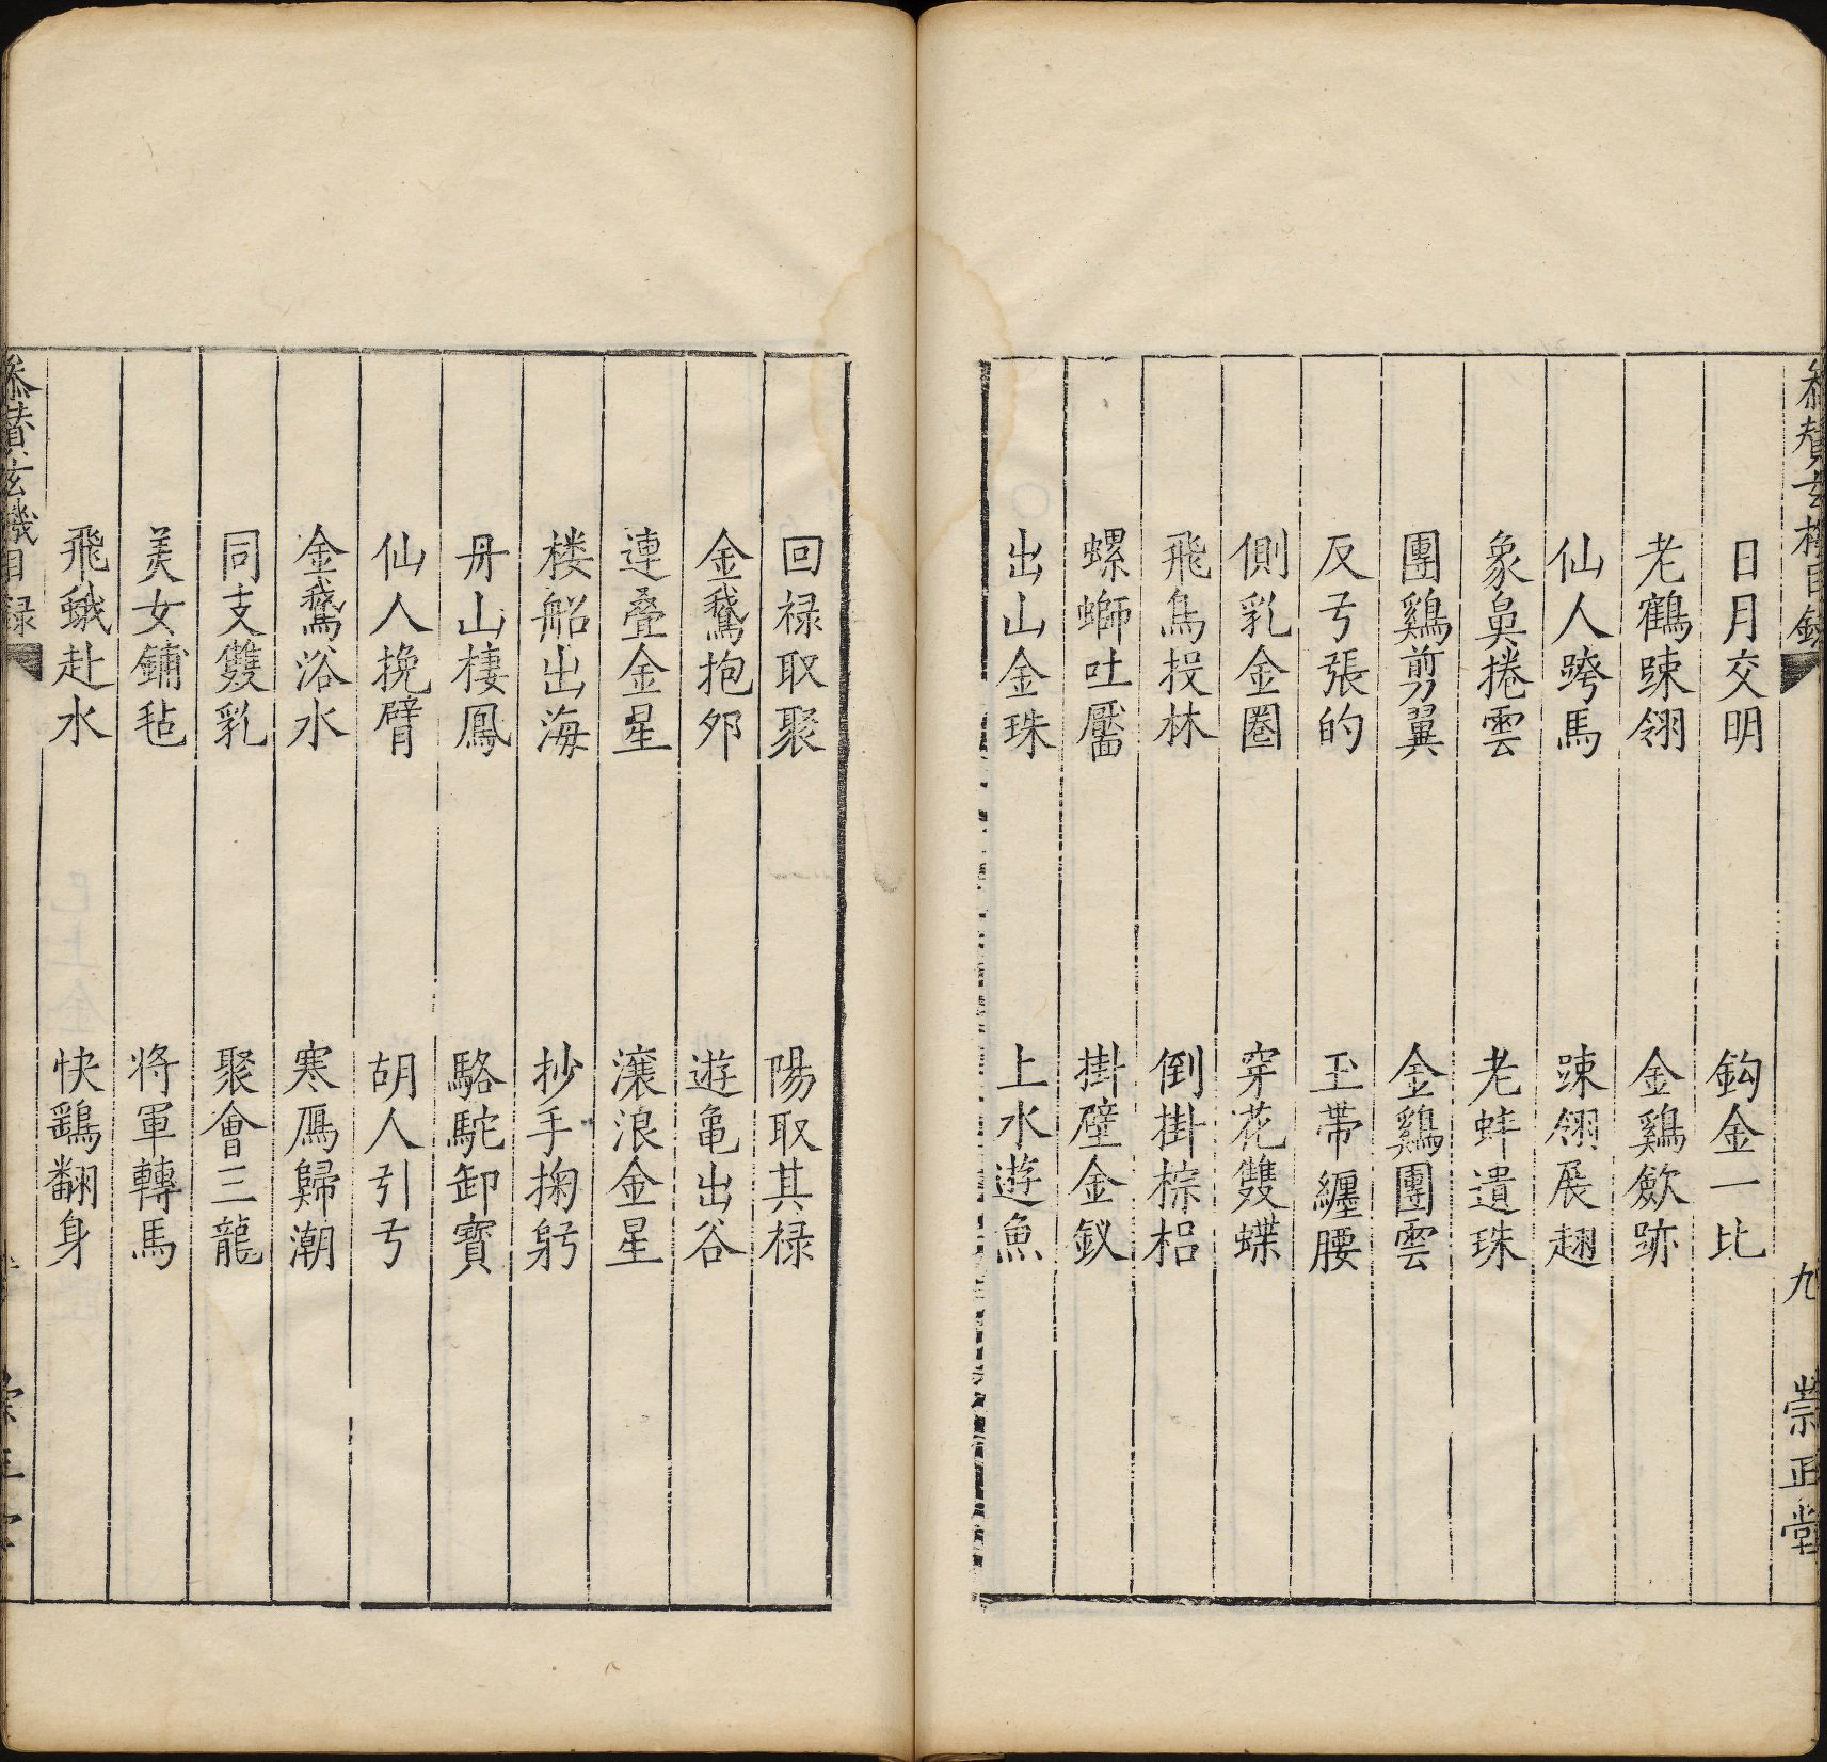 叅賛玄機目録
九
崇正堂
日月交明
鈎金一比
老鶴踈翎
金鷄歛跡
仙人跨馬
踈翎展翅
象鼻捲雲
老蚌遺珠
團鷄剪翼
金鷄團雲
反弓張的
玉帶纏腰
側乳金圈
穿花雙蝶
飛鳥投林
倒掛棕梠
螺螄吐靨
掛壁金釵
出山金珠
上水遊魚
回禄取聚
陽取其禄
金鵞抱夘
遊亀出谷
連疊金星
滾浪金星
楼船出海
抄手掬躬
丹山棲鳳
駱駝卸寳
仙人挽臂
胡人引弓
金鵞浴水
寒鴈歸潮
同支雙乳
聚會三龍
美女鋪毡
将軍轉馬
飛蛾赴水
快鷂翻身
叅賛玄機目録